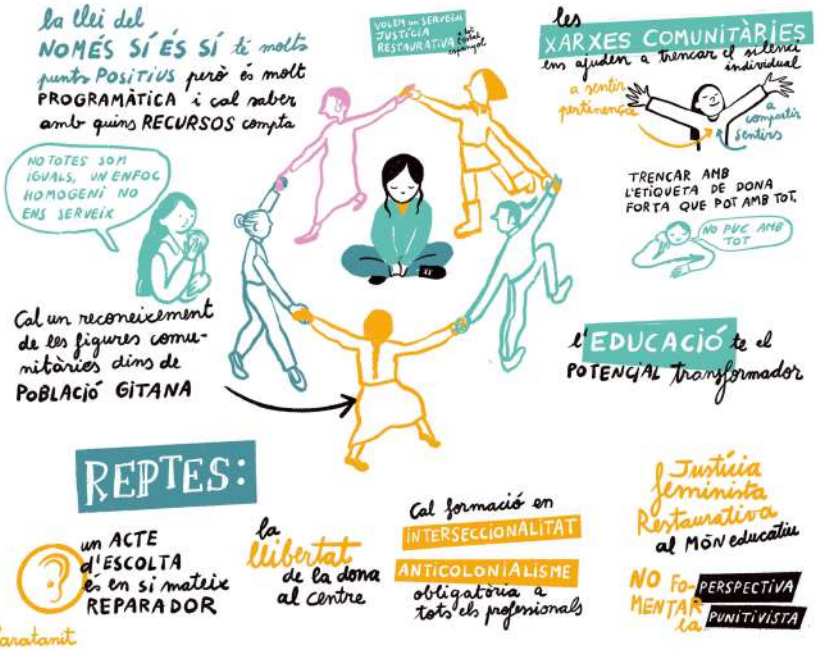 la llei del
NOMÉS SÍ ÉS SÍ té molts
punts POSITIUS però és molt
PROGRAMÀTICA i cal saber
amb quins RECURSOS compta
VOLEM un SERVEI
JUSTÍCIA
RESTAURATIVA a tot
l'estat
espanyol
les
XARXES COMUNITÀRIES
ens ajuden a trencar el silenci
individual
a sentir
pertinença
a
compartir
sentirs
NO TOTES SOM
IGUALS, UN ENFOC
HOMOGENI NO
ENS SERVEIX
TRENCAR AMB
L'ETIQUETA DE DONA
FORTA QUE POT AMB TOT.
NO PUC AMB
TOT
Cal un reconeixement
de les figures comu-
nitàries dins de
POBLACIÓ GITANA
l'EDUCACIÓ te el
POTENCIAL transformador
REPTES:
un ACTE
d'ESCOLTA
és en si mateix
REPARADOR
la
llibertat
de la dona
al centre
Cal formació en
INTERSECCIONALITAT
ANTICOLONIALISME
obligatòria a
tots els professionals
Justícia
feminista
Restaurativa
al MÓN educatiu
NO FO-
MENTAR
la
PERSPECTIVA
PUNITIVISTA
aratanit